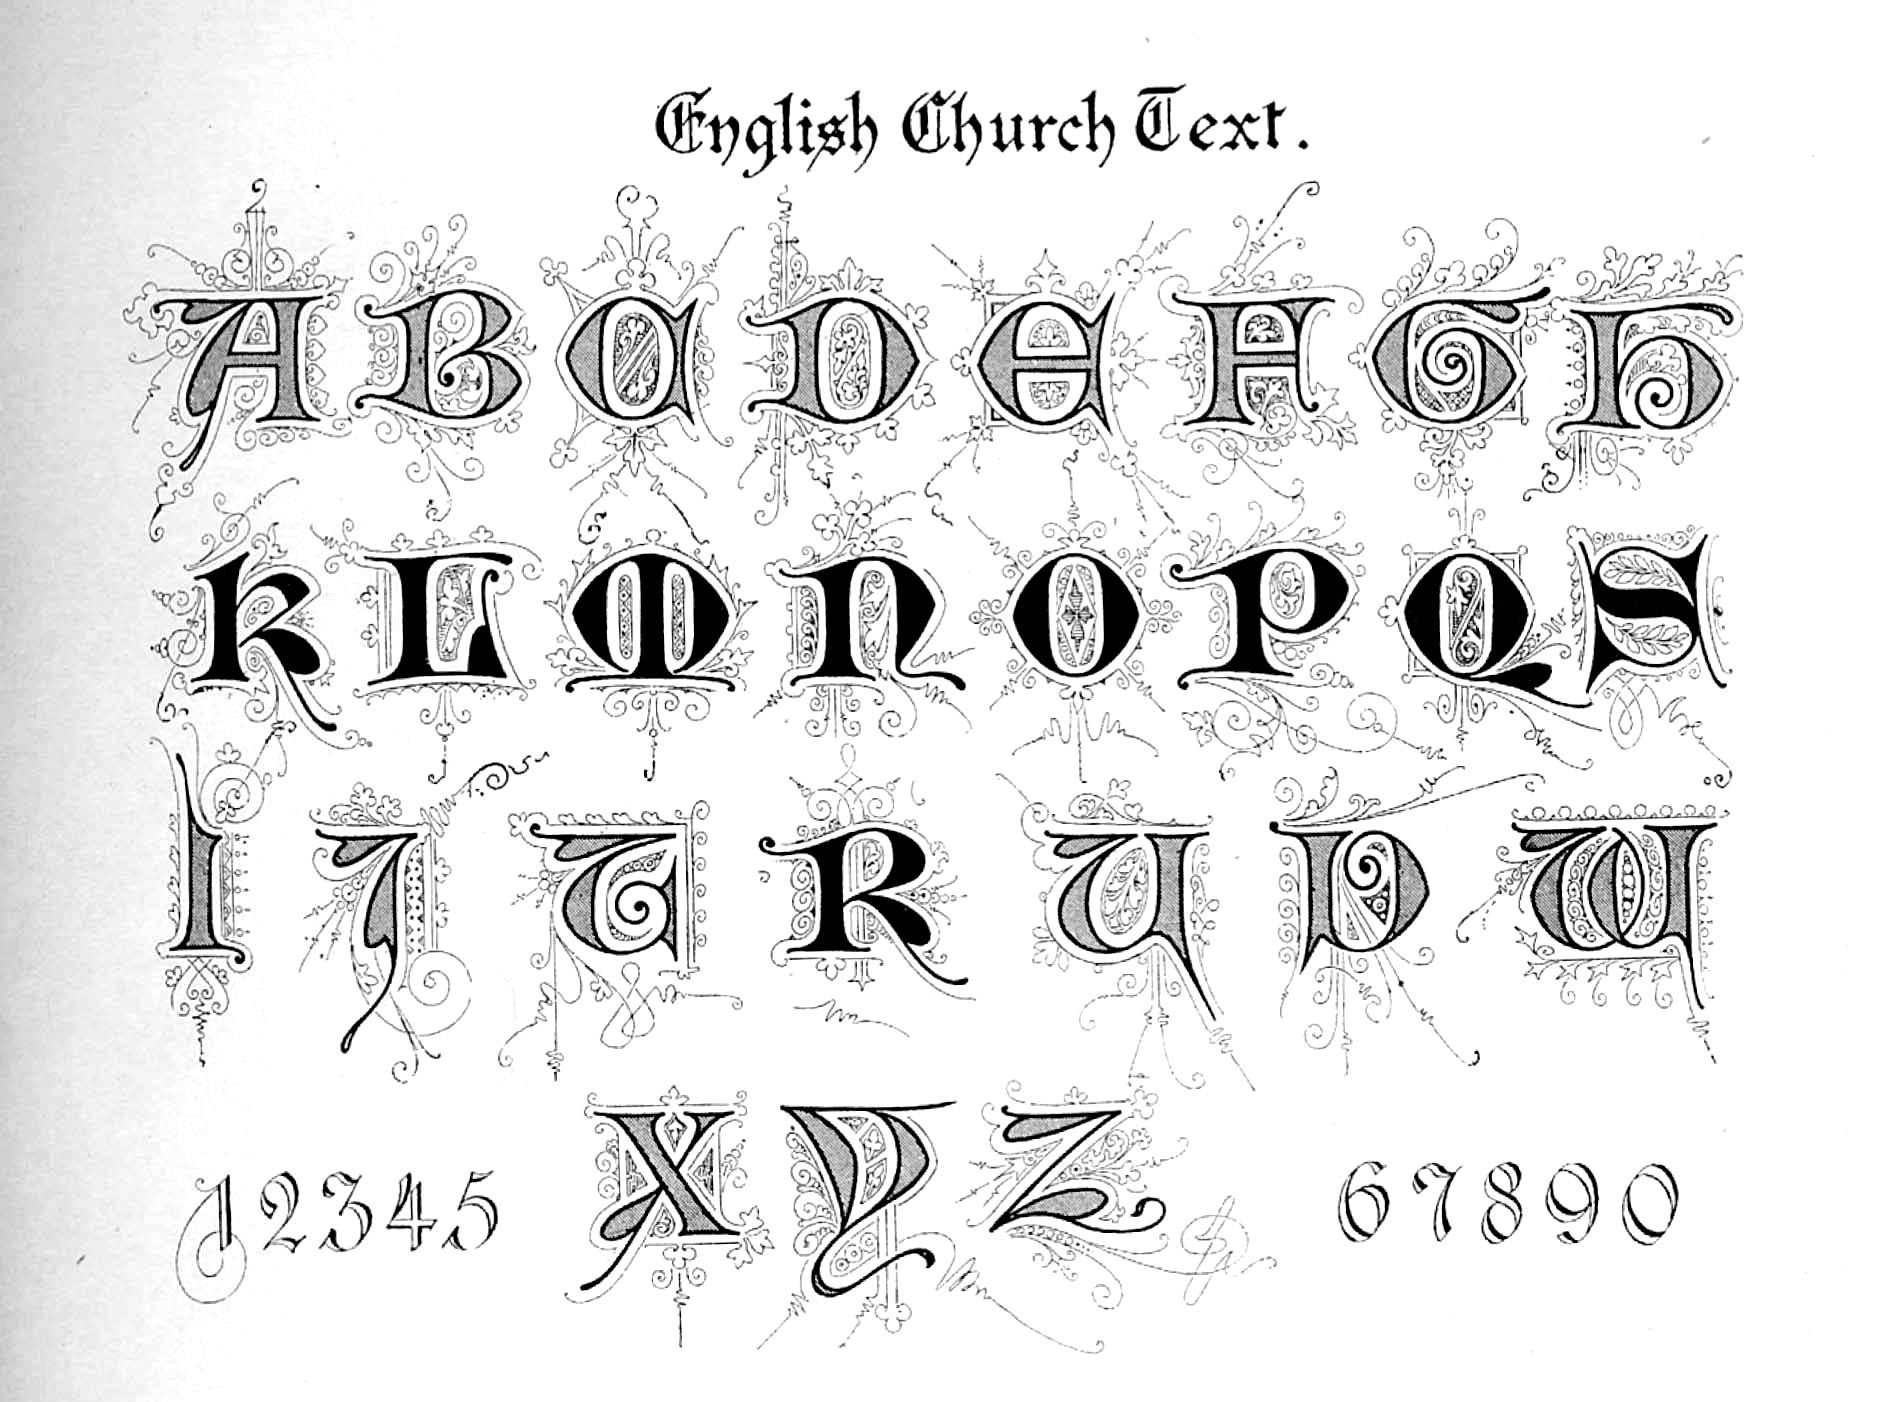 English Church Text.
A B C D E F G H
K L M N O P Q S
I J T R U V W
12345 X Y Z 67890